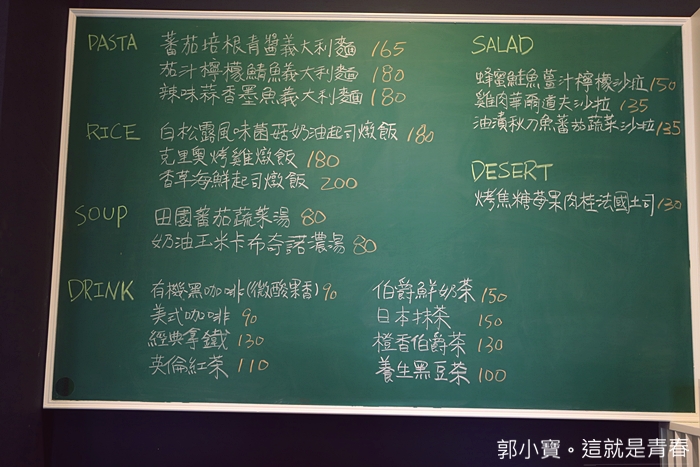 PASTA 蕃茄培根青醬義大利麵 165
茄汁檸檬鯖魚義大利麵 180
辣味蒜香墨魚義大利麵 180
RICE 白松露風味菌菇奶油起司燉飯 180
克里奧烤雞燉飯 180
香草海鮮起司燉飯 200
SOUP 田園蕃茄蔬菜湯 80
奶油玉米卡布奇諾濃湯 80
SALAD
蜂蜜鮭魚薑汁檸檬沙拉 150
雞肉華爾道夫沙拉 135
油漬秋刀魚蕃茄蔬菜沙拉 135
DESERT
烤焦糖莓果肉桂法國土司 130
DRINK 有機黑咖啡(微酸果香) 90
美式咖啡 90
經典拿鐵 130
英倫紅茶 110
伯爵鮮奶茶 150
日本抹茶 150
橙香伯爵茶 130
養生黑豆茶 100
郭小寶。這就是青春